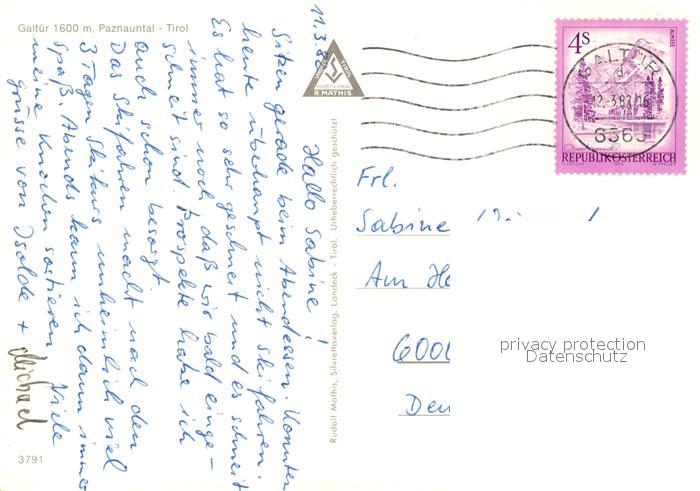 Galtür 1600 m, Paznauntal - Tirol
11.3.83
Hallo Sabine!
Sitzen gerade beim Abendessen. Konnten
heute überhaupt nicht skifahren.
Es hat so sehr geschneit und es schneit
immer noch, daß wir bald einge-
schneit sind. Prospekte habe ich
auch schon besorgt.
Das Skifahren macht nach den
3 Tagen Skikurs unheimlich viel
Spaß. Abends kann ich dann immer
meine Knochen sortieren. Viele
Grüsse von Isolde + Michael
3791
R. MATHIS
Rudolf Mathis, Silvrettaverlag, Landeck - Tirol. Urheberrechtlich geschützt
4S
ALMSEE
REPUBLIK ÖSTERREICH
GALTÜR
6563
Frl.
Sabine
Am
Deu
privacy protection
Datenschutz